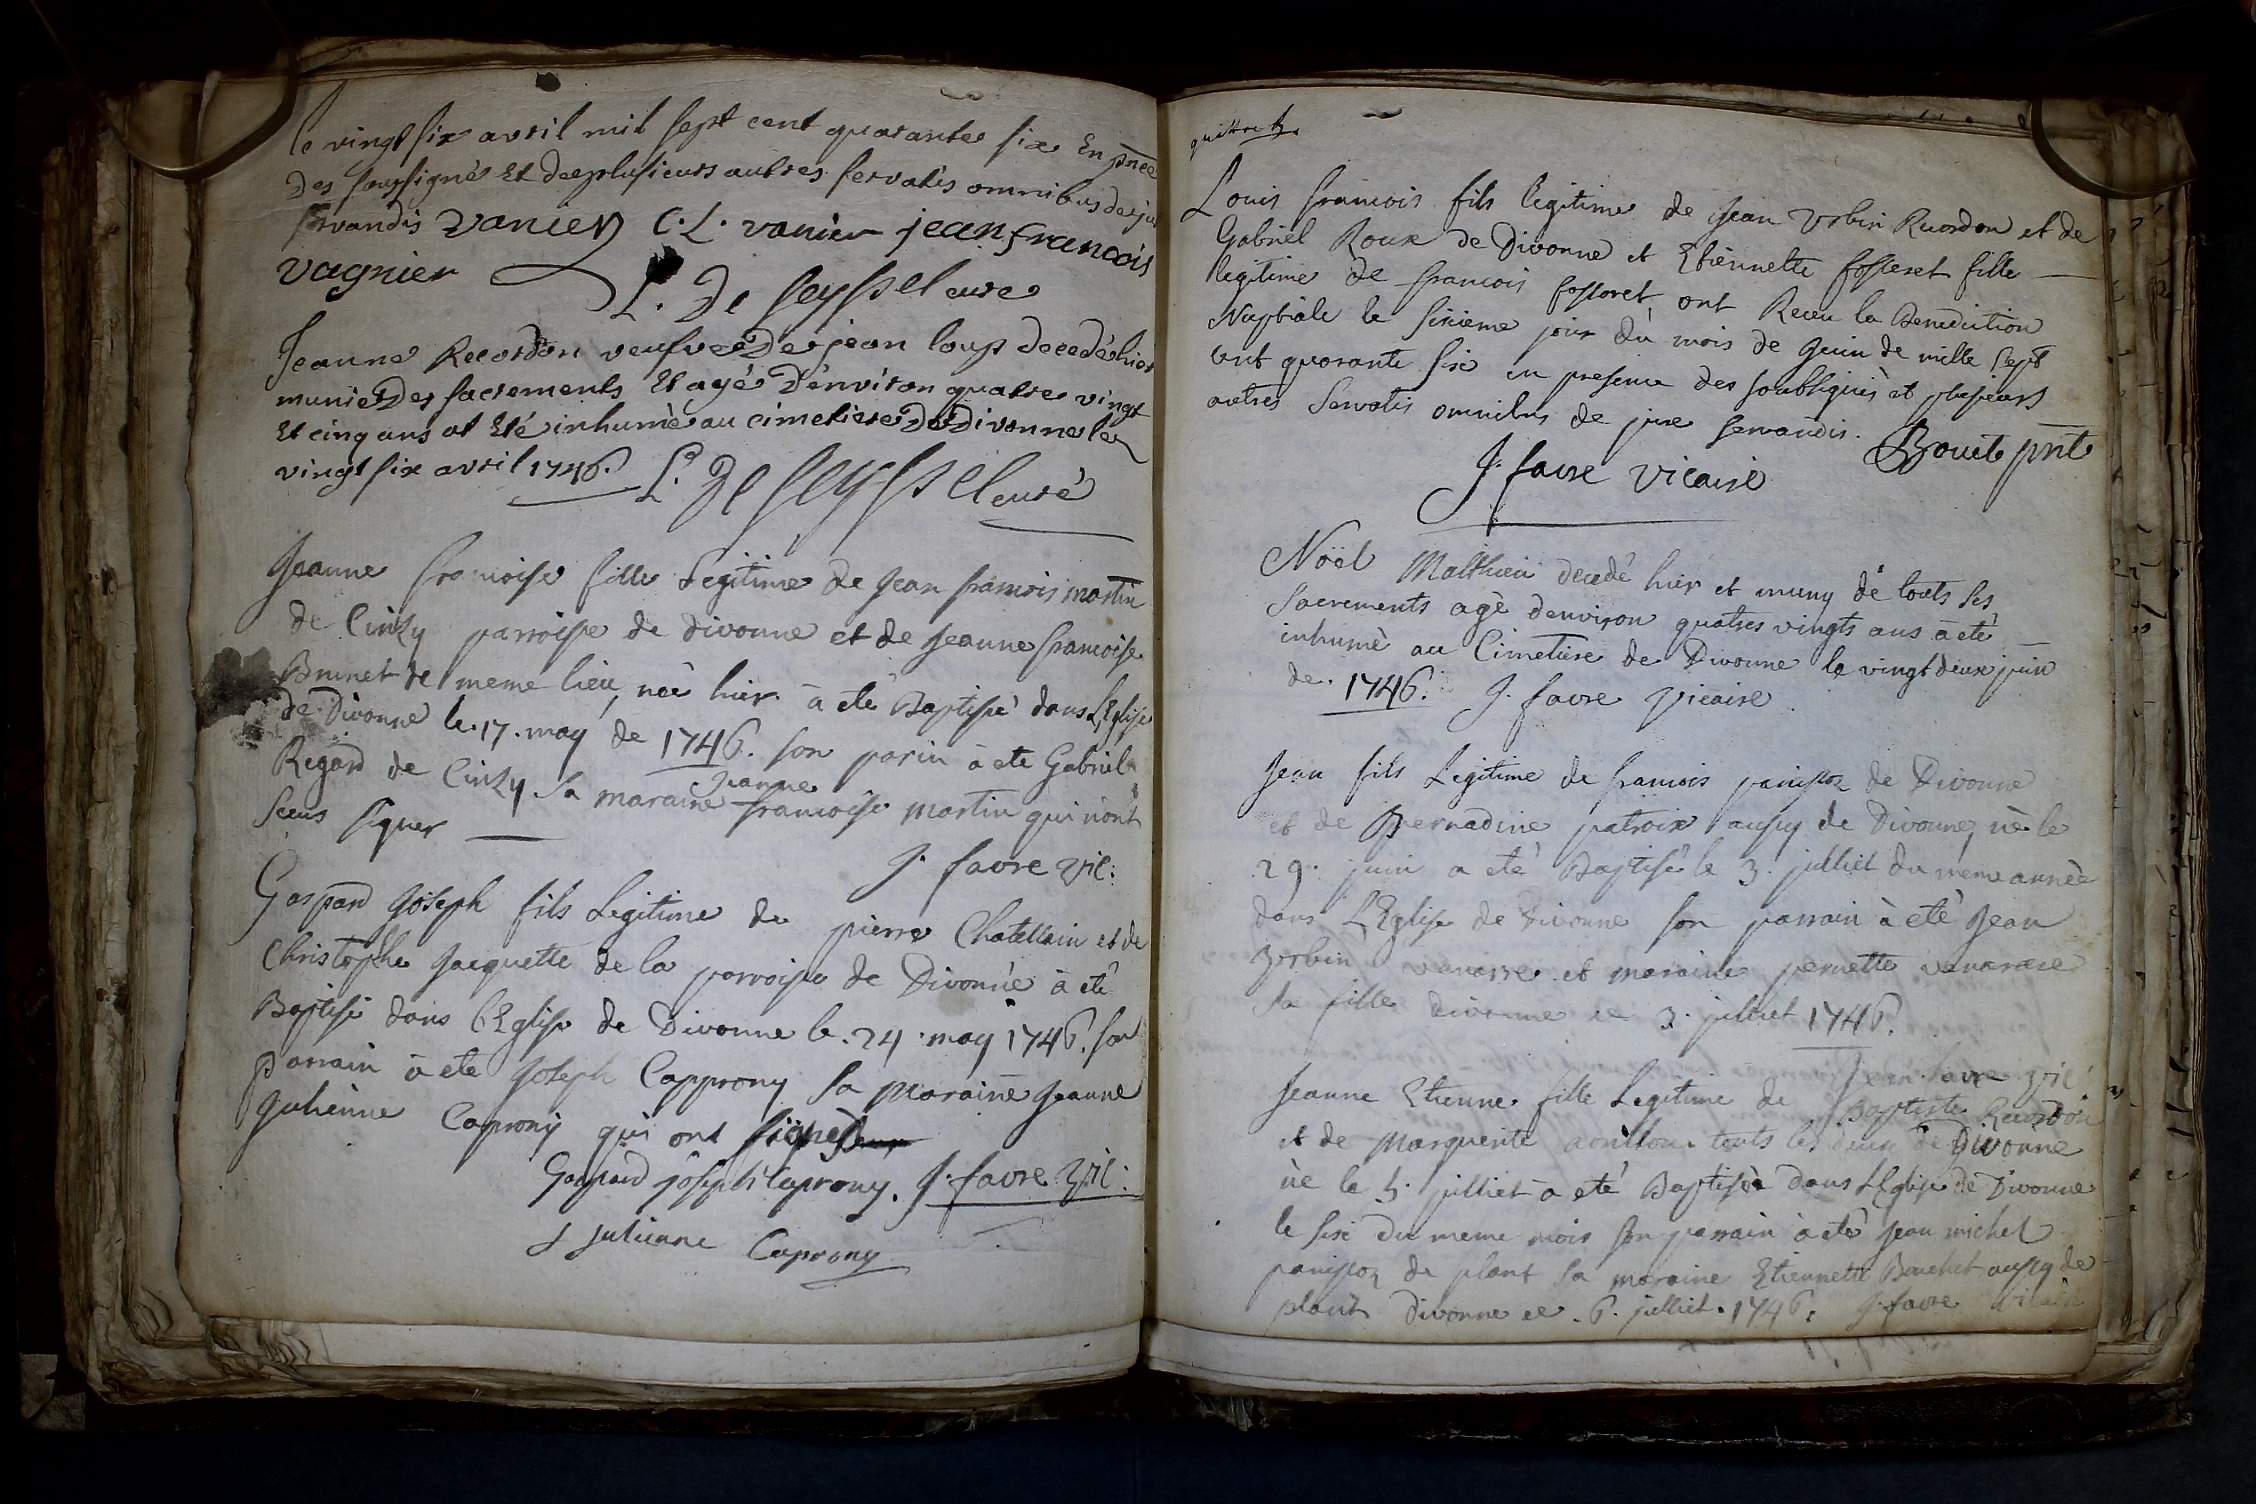 le vingt six avril mil sept cent quarante six En pnce
Des soussignés Et de plusieurs autres servatis omnibus de jure
servandis vanier C. L. vanier jean francois
vagnier
L. De seyssel curé
Jeanne Recordon veufve De jean loup decedé hier
munie Des sacrements Et agé D'environ quatre vingt
Et cinq ans at Eté inhumé au cimetiere De Divonne le
vingt six avril 1746. L. De seyssel curé
Jeanne francoise fille Legitime de Jean francois martin
de Cinzy parroisse de divonne et de Jeanne francoise
Brunet de meme lieu, née hier à eté Baptisé dans L'Eglise
de Divonne le .17. may de 1746. son parin à eté Gabriel
Regard de Cinzy sa maraine Jeanne francoise martin qui n'ont
sceus signer
J. favre vic:
Gaspard Joseph fils Legitime de pierre Chatellain et de
Christophe Jacquette de la parroisse de Divonne à eté
Baptisé dans l'Eglise de Divonne le .24. may 1746. son
parrain à eté Joseph Capprony sa maraine Jeanne
Julienne Caprony qui ont signé
Gaspard joseph Caprony. J. favre vic:
J Julienne Caprony
Louis francois fils legitime de Jean Urbin Recordon et de
Gabriel Roux de Divonne et Etiennette fosseret fille
legitime de francois fosseret ont Receu la Benediction
Nuptiale le sixieme jour du mois de Juin de mille sept
cent quarante six en presence des soubsignés et plusieurs
autres servatis omnibus de jure servandis. Bouit pnt
J. favre vicaire
Noël Matthieu decedé hier et muny de touts ses
sacrements agé d'environ quatres vingts ans à eté
inhumé au Cimetiere de Divonne le vingt deux juin
de 1746. J. favre vicaire
Jean fils Legitime de francois panissoz de Divonne
et de Bernadine patroix aussy de Divonne, né le
29. juin a eté Baptisé le 3. julliet du meme année
dans L'Eglise de Divonne son parrain à eté Jean
Urbin et maraine pernette
sa fille Divonne ce 3. julliet 1746.
Jean favre vic:
Jeanne Etienne fille Legitime de Baptiste Recordon
et de Marguerite touts les deux de Divonne
né le 5. julliet à eté Baptisée dans L'Eglise de Divonne
le six du meme mois son parrain à eté Jean michel
panissoz de plant sa maraine Etiennette Bouchet aussy de
plant Divonne ce .6. julliet .1746. J. favre vicaire